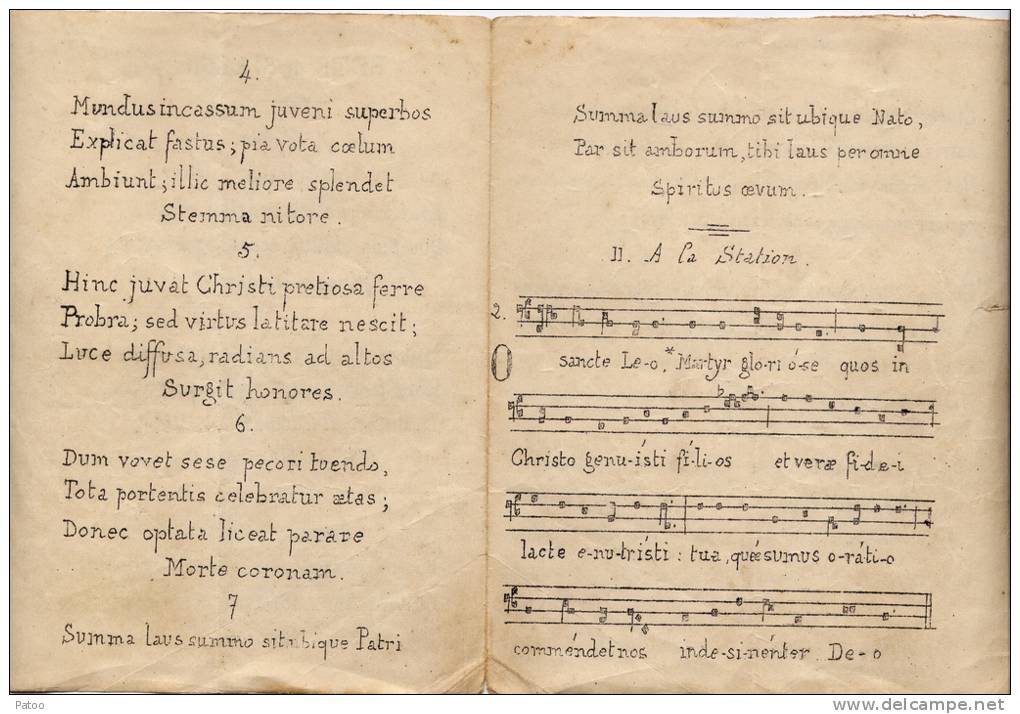 4.
Mundus incassum juveni superbos
Explicat fastus; pia vota cœlum
Ambiunt; illic meliore splendet
Stemma nitore.
5.
Hinc juvat Christi pretiosa ferre
Probra; sed virtus latitare nescit;
Luce diffusa, radians ad altos
Surgit honores.
6.
Dum vovet sese pecori tuendo,
Tota portentis celebratur ætas;
Donec optata liceat parare
Morte coronam.
7
Summa laus summo sit ubique Patri
Summa laus summo sit ubique Nato,
Par sit amborum, tibi laus per omne
Spiritus œvum.
II. A la Station.
2.
O sancte Le-o, * Martyr glo-ri ó-se quos in
b
Christo genu-ísti fí-li-os et veræ fí-de-i
lacte e-nu-trísti : tua, quǽsumus o-ráti-o
comméndet nos inde-si-nénter De-o
Patoo
www.delcampe.net